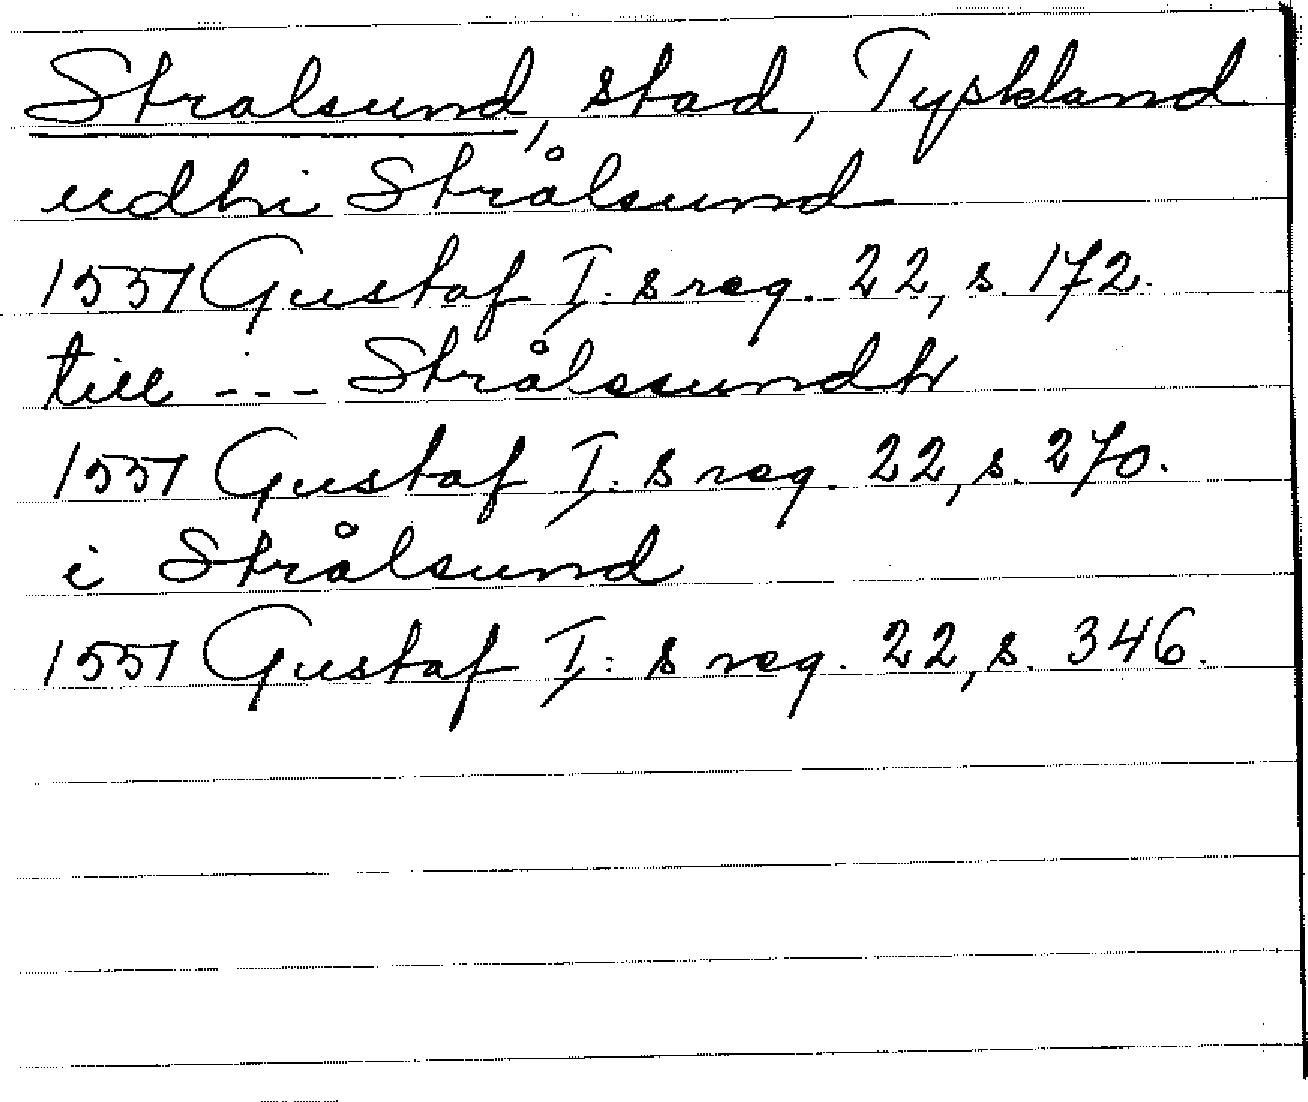 Stralsund, stad, Tyskland
udhi Strålsund
1551 Gustaf I:s reg. 22, s. 172.
till --- Strålssundh
1551 Gustaf I:s reg. 22, s. 270.
i Strålsund
1551 Gustaf I:s reg. 22, s. 346.